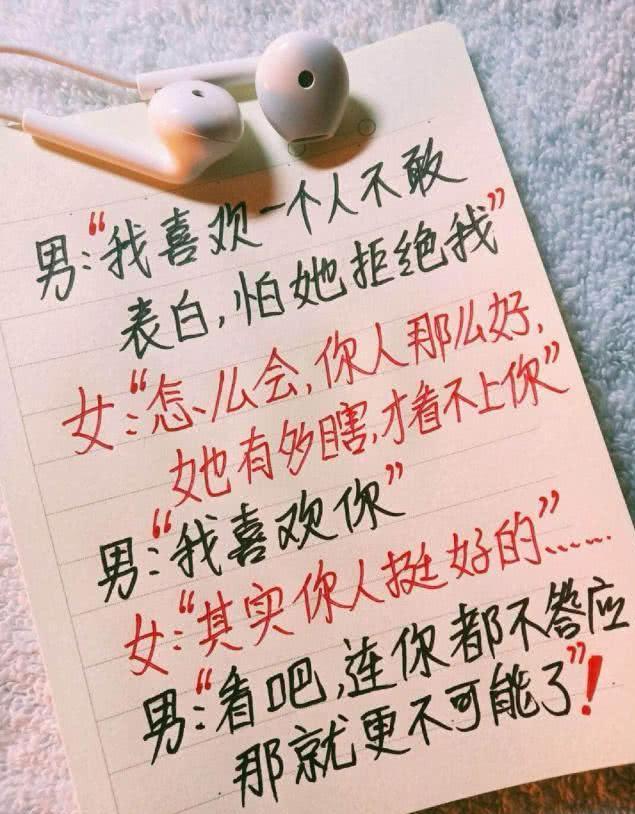 男:“我喜欢一个人不敢
表白,怕她拒绝我”
女:“怎么会,你人那么好,
她有多瞎,才看不上你”
男:“我喜欢你”
女:“其实你人挺好的”......
男:“看吧,连你都不答应
那就更不可能了”!